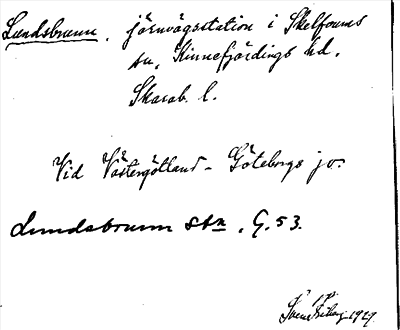 Lundsbrunn, järnvägsstation i Skelfoums
sn, Kinnefjärdings hd.
Skarab. l.
Vid Västergötland - Göteborgs jv.
Lundsbrunn stn, G. 53.
1927.